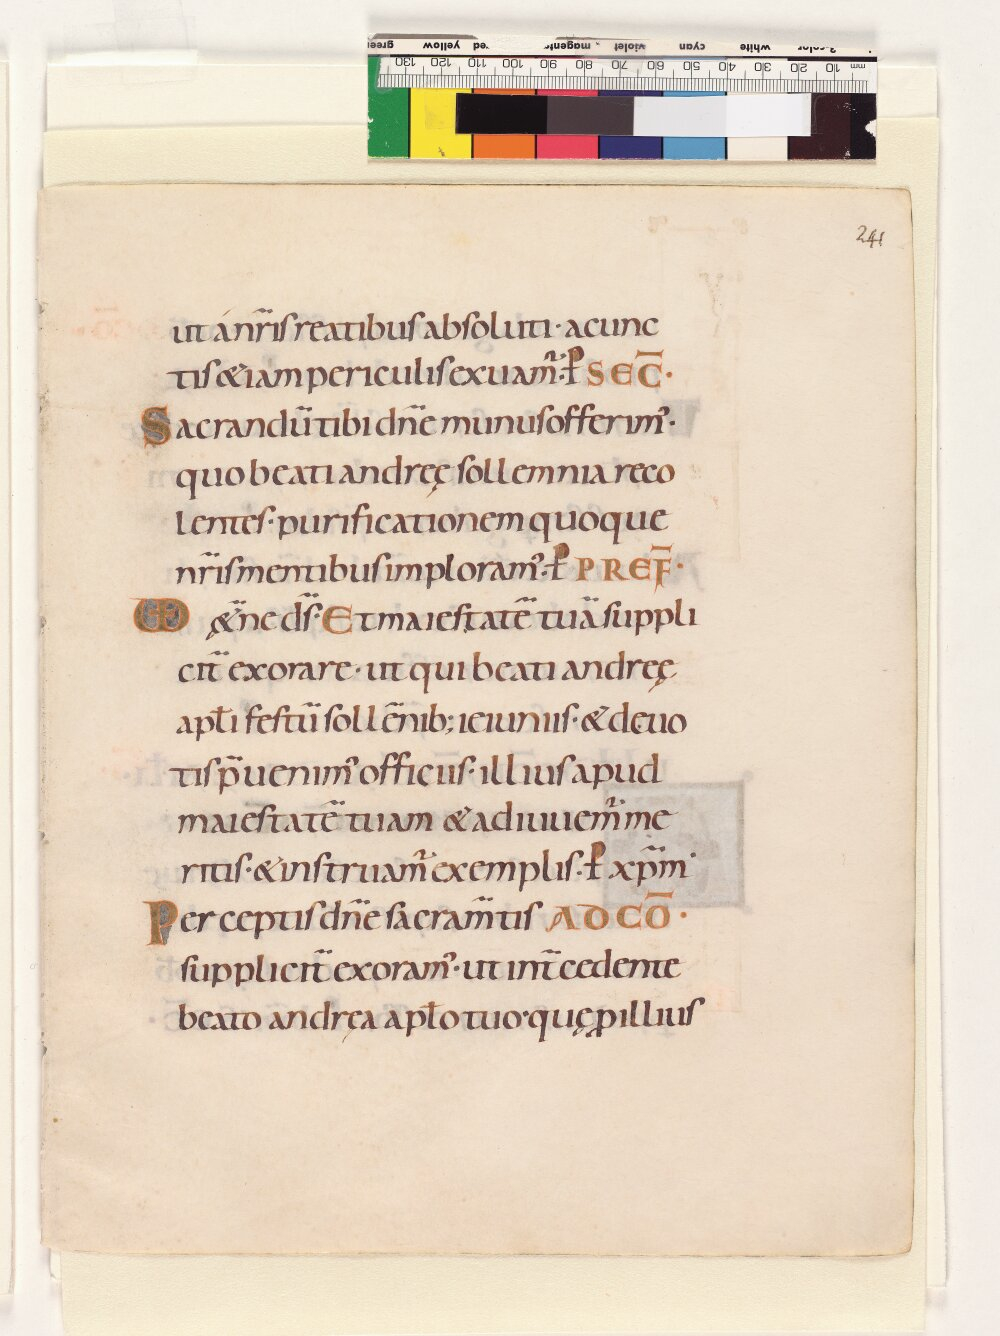 241
ut á nr̄is reatibus absoluti · a cunc
tis & iam periculis exuam̄ · ꝑ SEC̄ ·
Sacrandū tibi dn̄e munus offerim᾽ ·
quo beati andreę sollemnia reco
lentes · purificationem quoque
nr̄is mentibus imploram᾽ · ꝑ PREF̄ ·
UD & ̨n̄c ds̄ · Et maiestatē tuā suppli
cit̄ exorare · ut qui beati andreę
apłi festū sollēnib; ieiuniis · & deuo
tis p̄uenim᾽ officiis · illius apud
maiestatē tuam & adiuuem̄ me
ritis · & instruam̄ exemplis · ꝑ xp̄m ·
Perceptis dn̄e sacram̄tis AD CŌ ·
supplicit̄ exoram᾽ · ut int̄cedente
beato andręa apło tuo · quę ꝑ illius